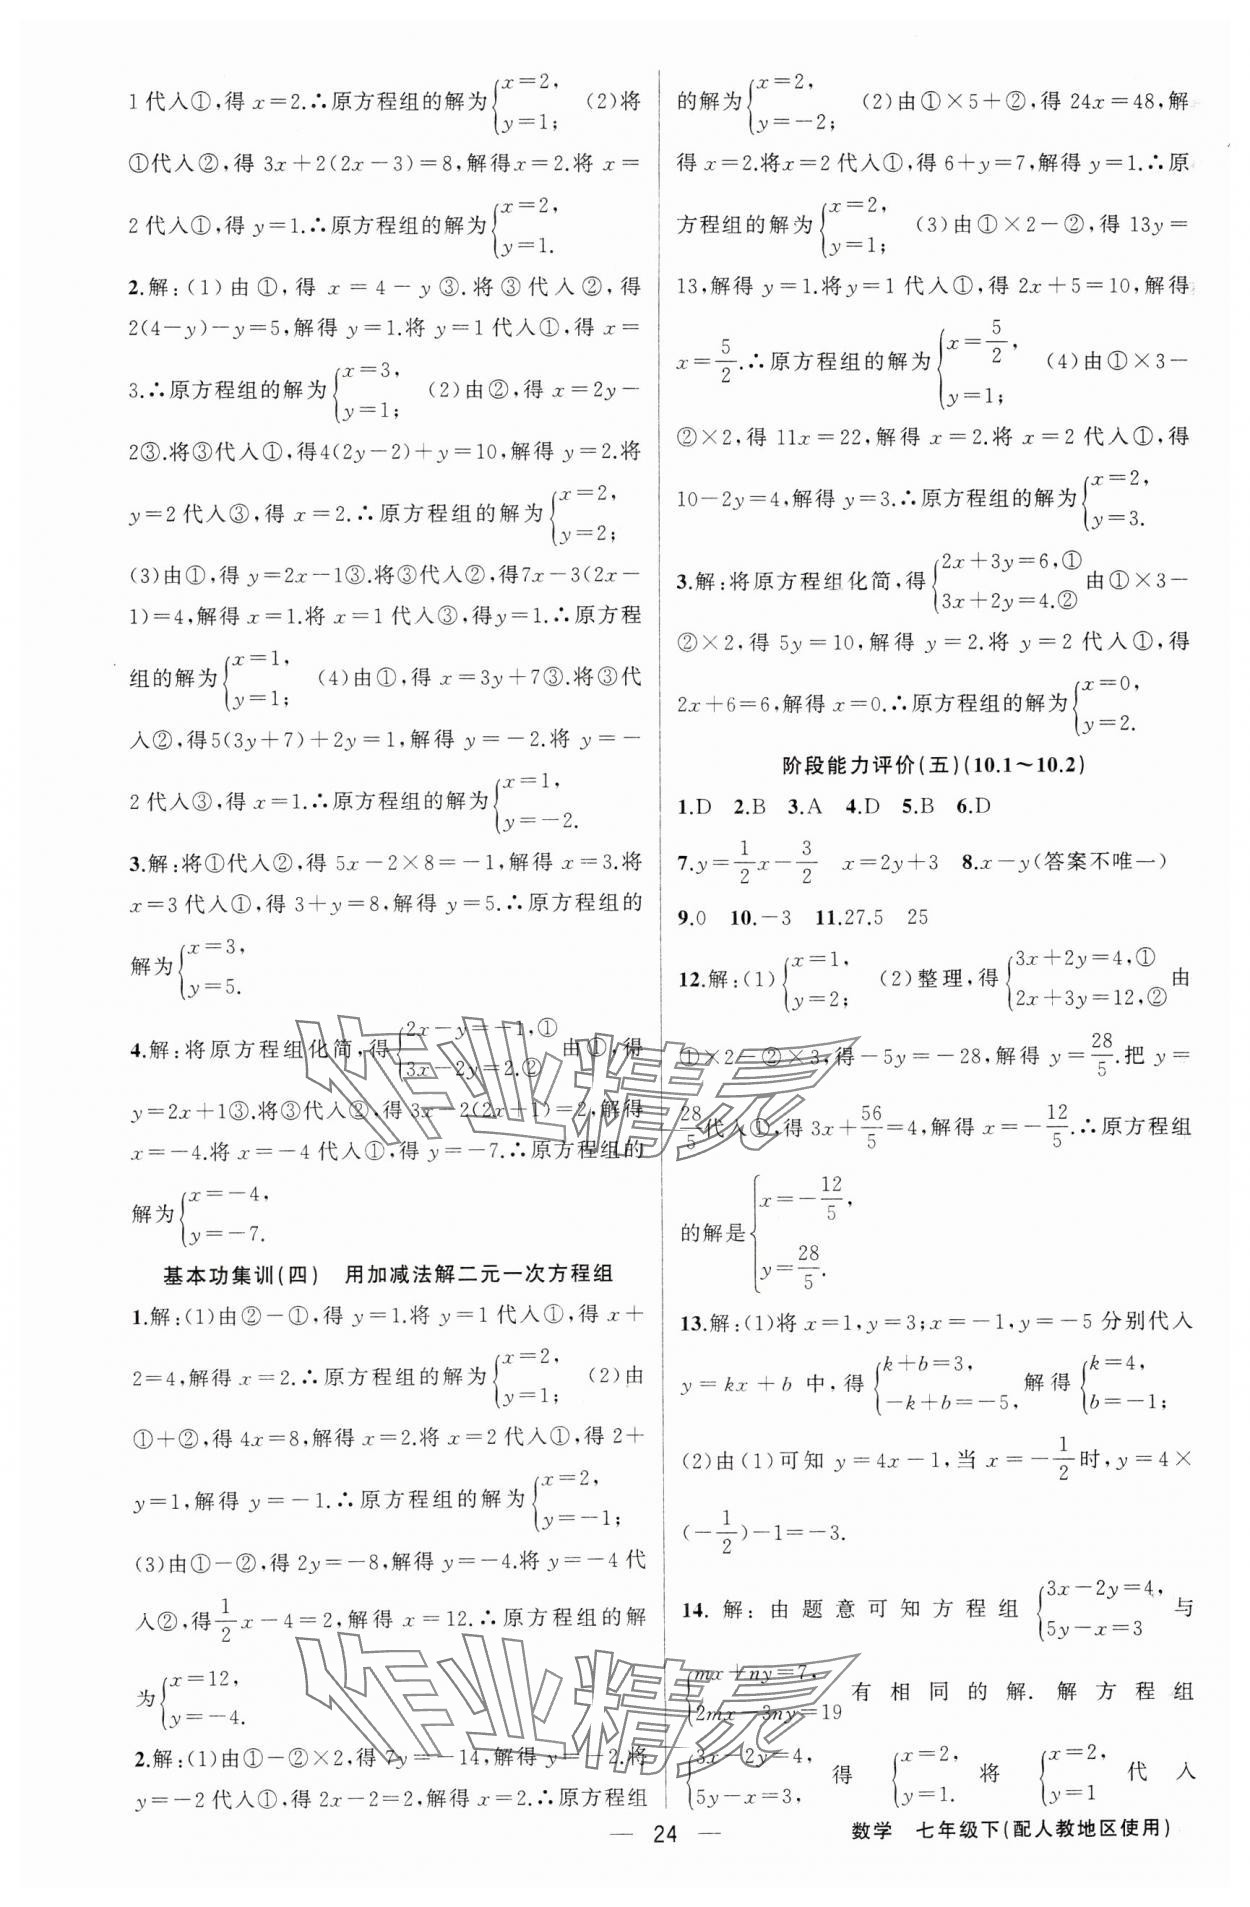 1代入①,得 x=2.∴原方程组的解为{x=2, y=1; (2)将
①代入②,得 3x+2(2x-3)=8,解得x=2.将 x=
2代入①,得 y=1.∴原方程组的解为{x=2, y=1.
2.解:(1)由①,得 x=4-y③.将③代入②,得
2(4-y)-y=5,解得 y=1.将 y=1代入①,得 x=
3.∴原方程组的解为{x=3, y=1; (2)由②,得 x=2y-
2③.将③代入①,得4(2y-2)+y=10,解得 y=2.将
y=2代入③,得 x=2.∴原方程组的解为{x=2, y=2;
(3)由①,得 y=2x-1③.将③代入②,得7x-3(2x-
1)=4,解得 x=1.将 x=1代入③,得y=1.∴原方程
组的解为{x=1, y=1; (4)由①,得 x=3y+7③.将③代
入②,得5(3y+7)+2y=1,解得 y=-2.将 y=-
2代入③,得 x=1.∴原方程组的解为{x=1, y=-2.
3.解:将①代入②,得 5x-2×8=-1,解得 x=3.将
x=3代入①,得 3+y=8,解得 y=5.∴原方程组的
解为{x=3, y=5.
4.解:将原方程组化简,得{2x-y=-1,① 3x-2y=2.② 由①,得
y=2x+1③.将③代入②,得 3x-2(2x+1)=2,解得
x=-4.将 x=-4代入①,得 y=-7.∴原方程组的
解为{x=-4, y=-7.
基本功集训(四) 用加减法解二元一次方程组
1.解:(1)由②-①,得 y=1.将 y=1代入①,得 x+
2=4,解得 x=2.∴原方程组的解为{x=2, y=1; (2)由
①+②,得 4x=8,解得 x=2.将 x=2代入①,得 2+
y=1,解得 y=-1.∴原方程组的解为{x=2, y=-1;
(3)由①-②,得 2y=-8,解得 y=-4.将 y=-4代
入②,得1/2x-4=2,解得 x=12.∴原方程组的解
为{x=12, y=-4.
2.解:(1)由①-②×2,得 7y=-14,解得 y=-2.将
y=-2代入①,得 2x-2=2,解得 x=2.∴原方程组
的解为{x=2, y=-2; (2)由①×5+②,得 24x=48,解
得 x=2.将x=2代入①,得 6+y=7,解得 y=1.∴原
方程组的解为{x=2, y=1; (3)由①×2-②,得 13y=
13,解得 y=1.将y=1代入①,得 2x+5=10,解得
x=5/2.∴原方程组的解为{x=5/2, y=1; (4)由①×3-
②×2,得 11x=22,解得 x=2.将 x=2代入①,得
10-2y=4,解得 y=3.∴原方程组的解为{x=2, y=3.
3.解:将原方程组化简,得{2x+3y=6,① 3x+2y=4.② 由①×3-
②×2,得 5y=10,解得 y=2.将 y=2代入①,得
2x+6=6,解得 x=0.∴原方程组的解为{x=0, y=2.
阶段能力评价(五)(10.1~10.2)
1.D 2.B 3.A 4.D 5.B 6.D
7.y=1/2x-3/2 x=2y+3 8.x-y(答案不唯一)
9.0 10.-3 11.27.5 25
12.解:(1){x=1, y=2; (2)整理,得{3x+2y=4,① 2x+3y=12,② 由
①×2-②×3,得-5y=-28,解得 y=28/5.把 y=
28/5代入①,得 3x+56/5=4,解得 x=-12/5.∴原方程组
的解是{x=-12/5, y=28/5.
13.解:(1)将 x=1,y=3;x=-1,y=-5分别代入
y=kx+b 中,得{k+b=3, -k+b=-5, 解得{k=4, b=-1;
(2)由(1)可知 y=4x-1,当 x=-1/2时,y=4×
(-1/2)-1=-3.
14.解:由题意可知方程组{3x-2y=4, 5y-x=3 与
{mx+ny=7, 2mx-3ny=19 有相同的解.解方程组
{3x-2y=4, 5y-x=3, 得 {x=2, y=1. 将 {x=2, y=1 代入
— 24 —
数学 七年级下(配人教地区使用)
作业精灵
作业精灵